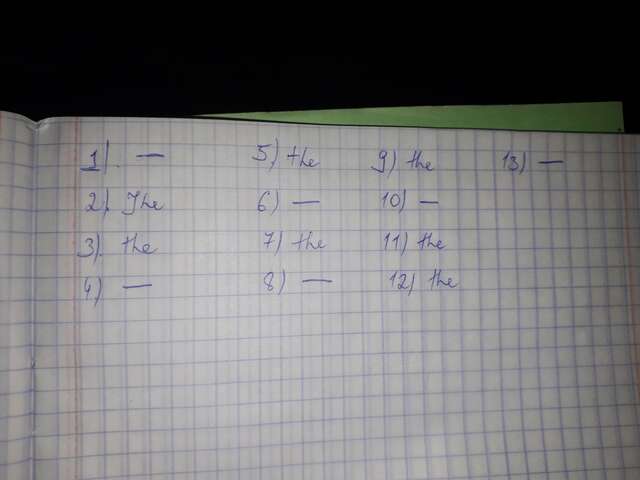 1). —
2). The
3). the
4) —
5) the
6) —
7) the
8) —
9) the
10) —
11) the
12) the
13) —